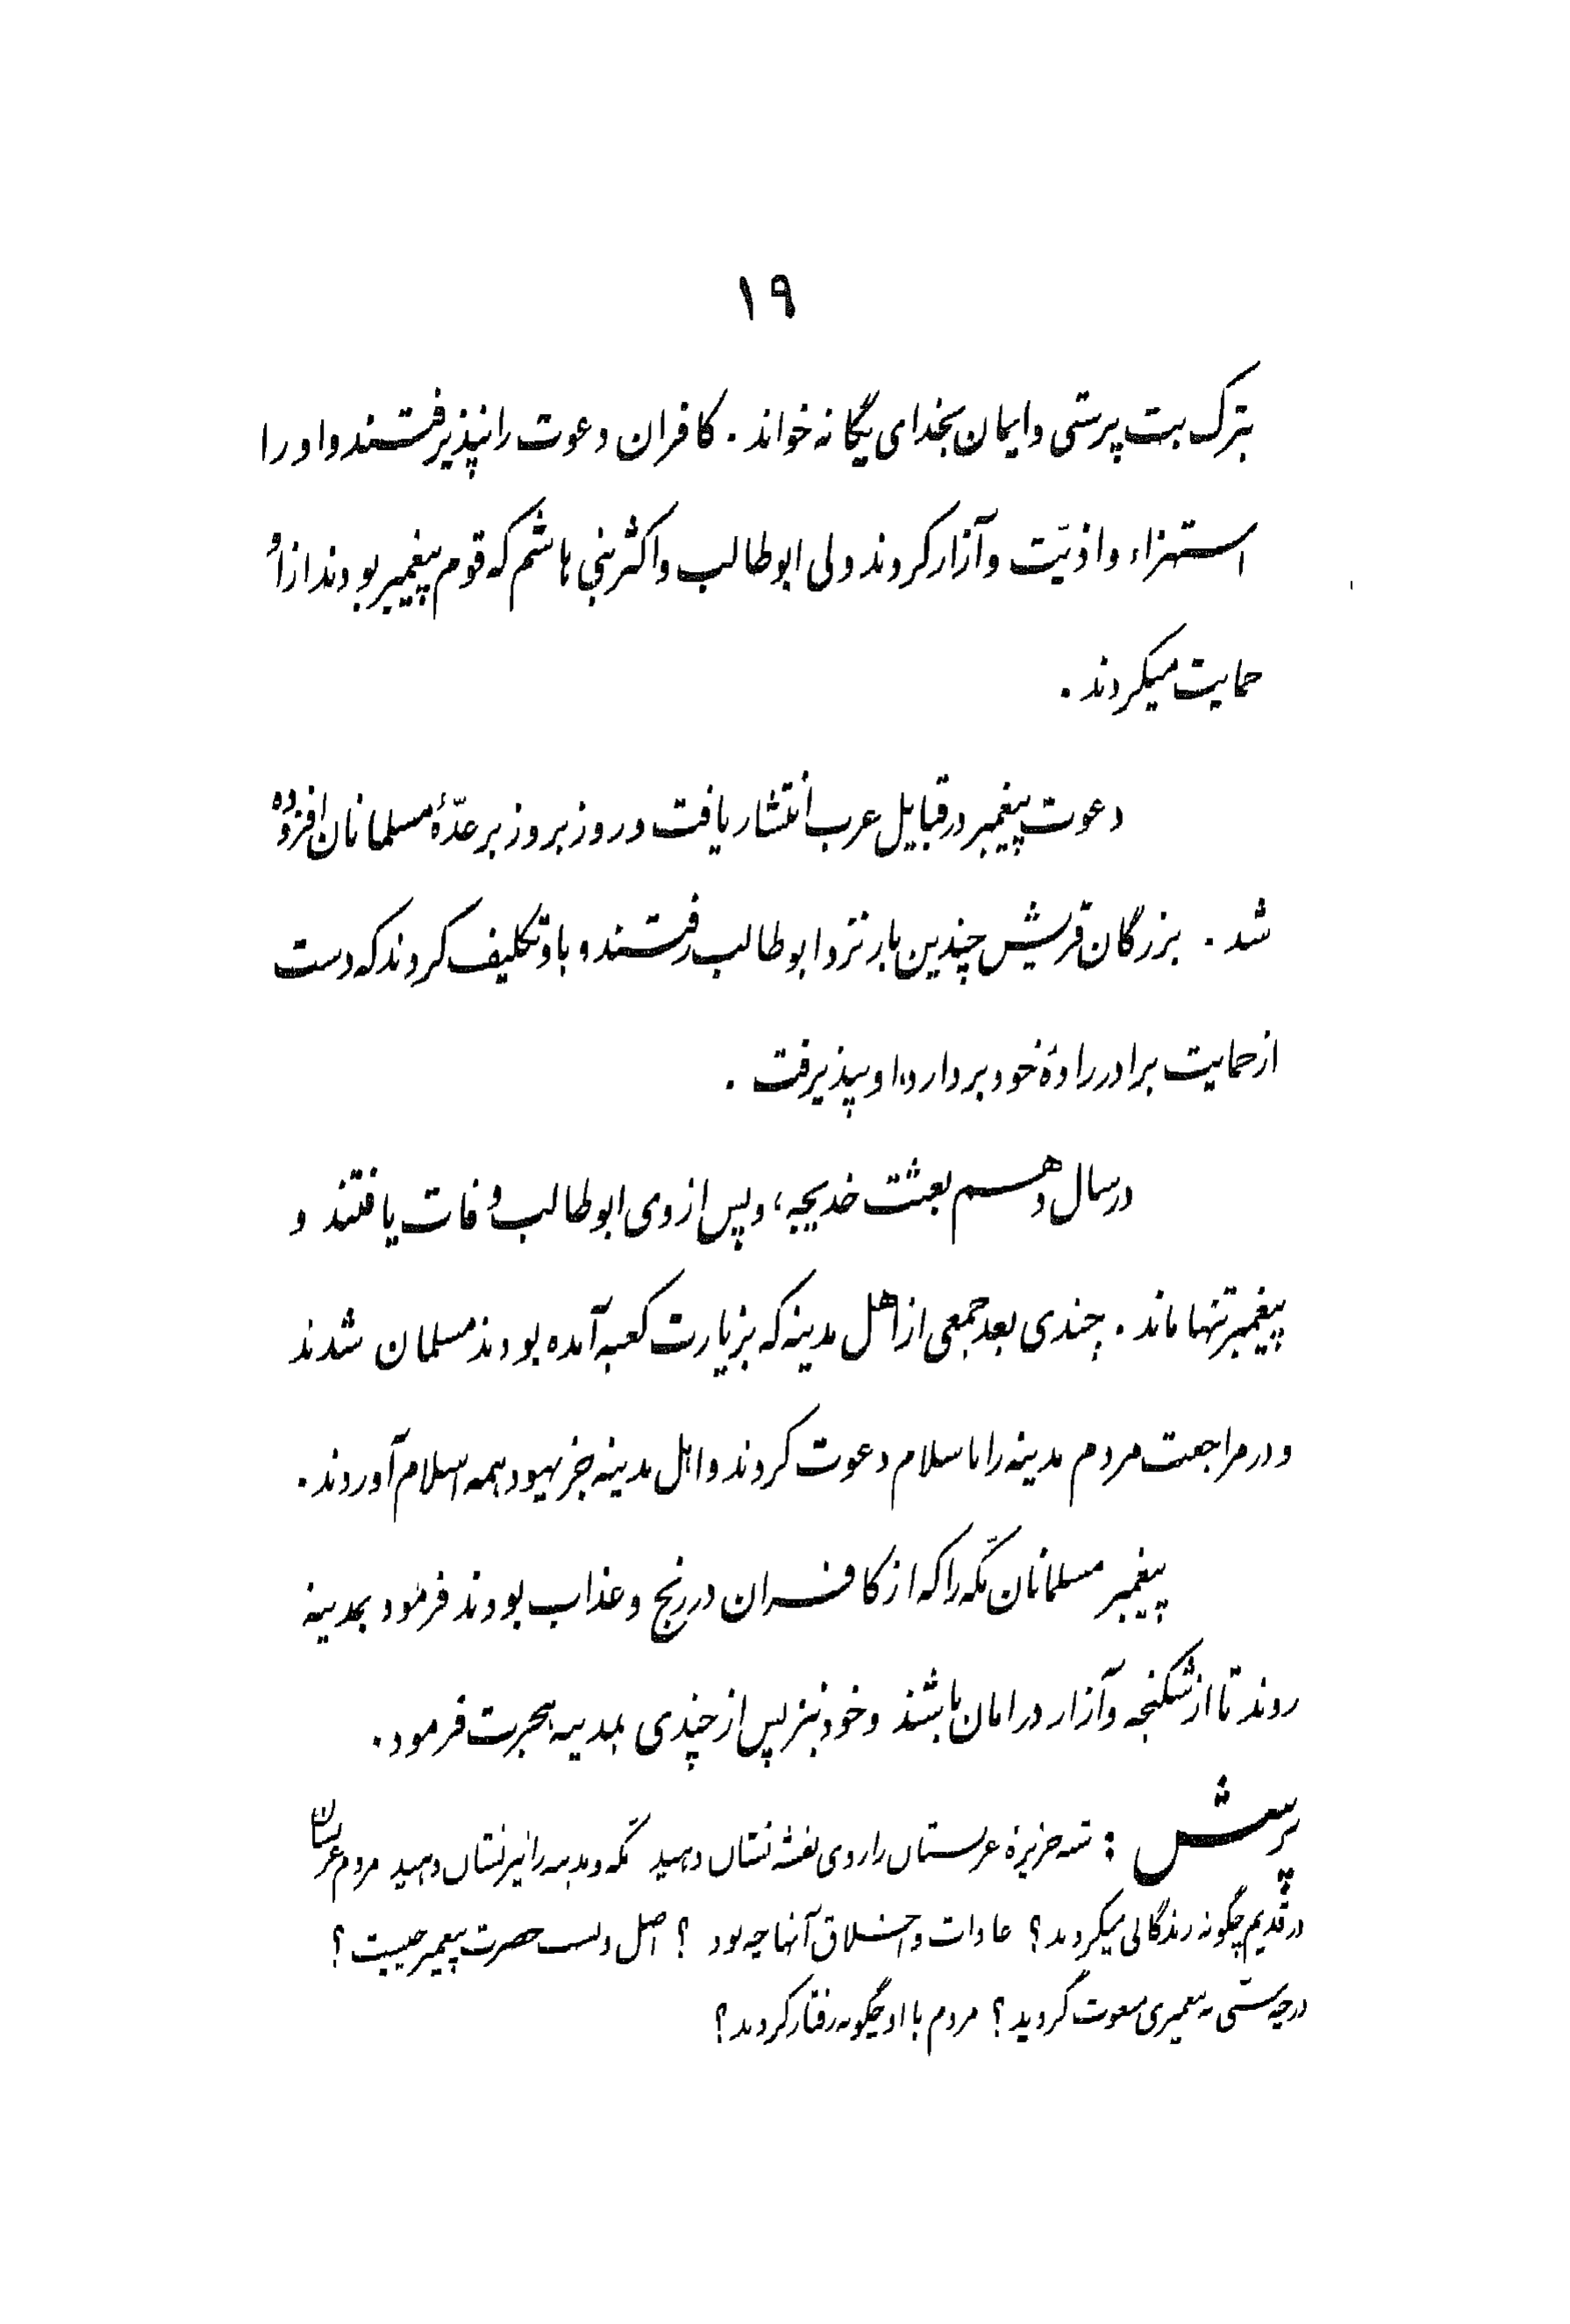 ۱۹
بترک بت پرستی و ایمان بخدای یگانه خواند . کافران دعوت را نپذیرفتند و او را
استهزاء و اذیّت و آزار کردند ولی ابوطالب و اکثر بنی هاشم که قوم پیغمبر بودند از او
حمایت میکردند .
دعوت پیغمبر در قبایل عرب انتشار یافت و روز بروز بر عدّهٔ مسلمانان افزوده
شد . بزرگان قریش چندین بار نزد ابوطالب رفتند و باو تکلیف کردند که دست
از حمایت برادرزادهٔ خود بردارد، او نپذیرفت .
در سال دهم بعثت خدیجه ، و پس از وی ابوطالب وفات یافتند و
پیغمبر تنها ماند . چندی بعد جمعی از اهل مدینه که بزیارت کعبه آمده بودند مسلمان شدند
و در مراجعت مردم مدینه را باسلام دعوت کردند و اهل مدینه جز یهود همه اسلام آوردند .
پیغمبر مسلمانان مکّه را که از کافران در رنج و عذاب بودند فرمود بمدینه
روند تا از شکنجه و آزار در امان باشند و خود نیز پس از چندی بمدینه هجرت فرمود .
پرسش : شبه جزیرهٔ عربستان را روی نقشه نشان دهید مکّه و مدینه را نیز نشان دهید مردم عربستان
در قدیم چگونه زندگانی میکردند ؟ عادات و اخلاق آنها چه بود ؟ اصل و نسب حضرت پیغمبر چیست ؟
در چه سنّی به پیغمبری مبعوث گردید ؟ مردم با او چگونه رفتار کردند ؟